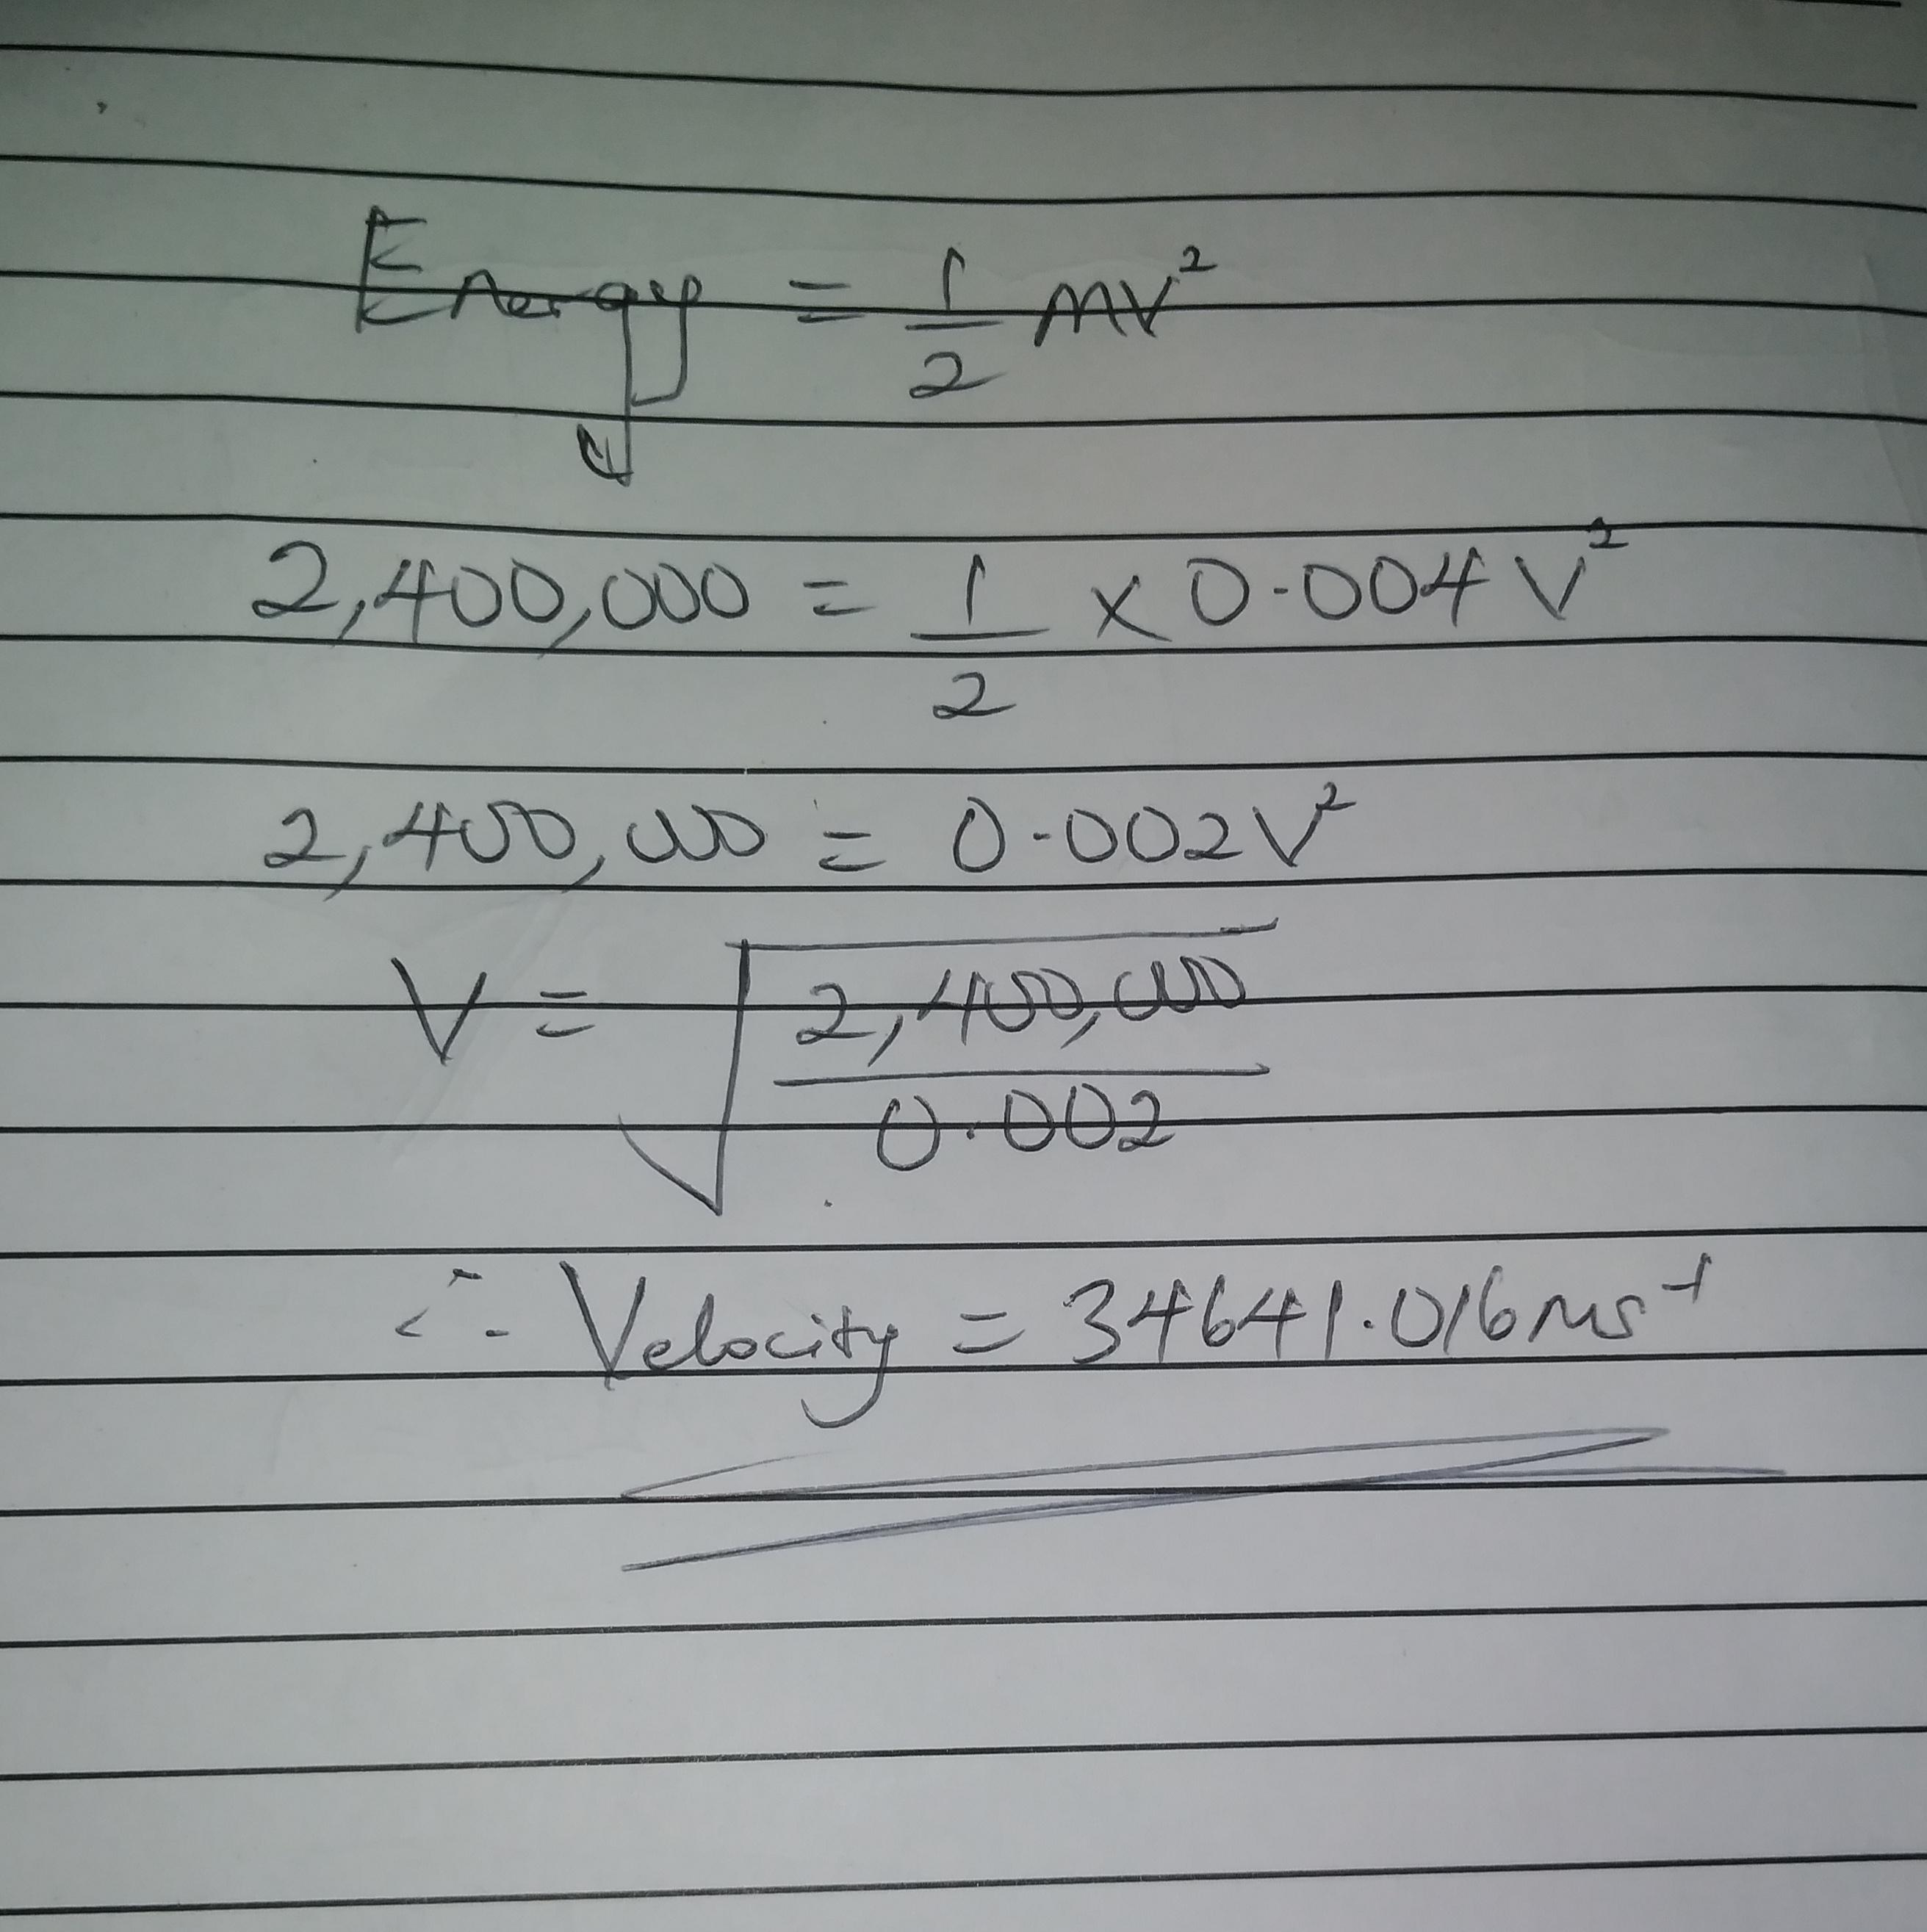 Energy = 1/2 mv²
2,400,000 = 1/2 × 0.004 V²
2,400,000 = 0.002V²
V = √(2,400,000/0.002)
∴ Velocity = 34641.016 ms⁻¹